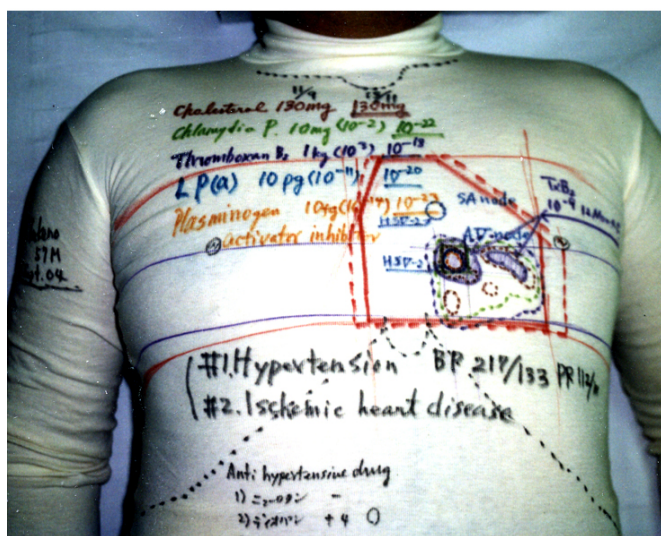 11/9 12/11
Cholesterol 180mg 130mg
Chlamydia P. 10mg (10-2) 10-22
Thromboxan B2 1kg (10³) 10-18
LP(a) 10pg (10-11) 10-20
Plasminogen 10-23
activator inhibitor
HSV-2
SA node
AV-node
HSV-2
TxB2
10-9
59M
Sept. 04
#1. Hypertension BP 217/133 PR 112/m
#2. Ischemic heart disease
Anti hypertensive drug
1) ニューロタン -
2) ディオバン +4